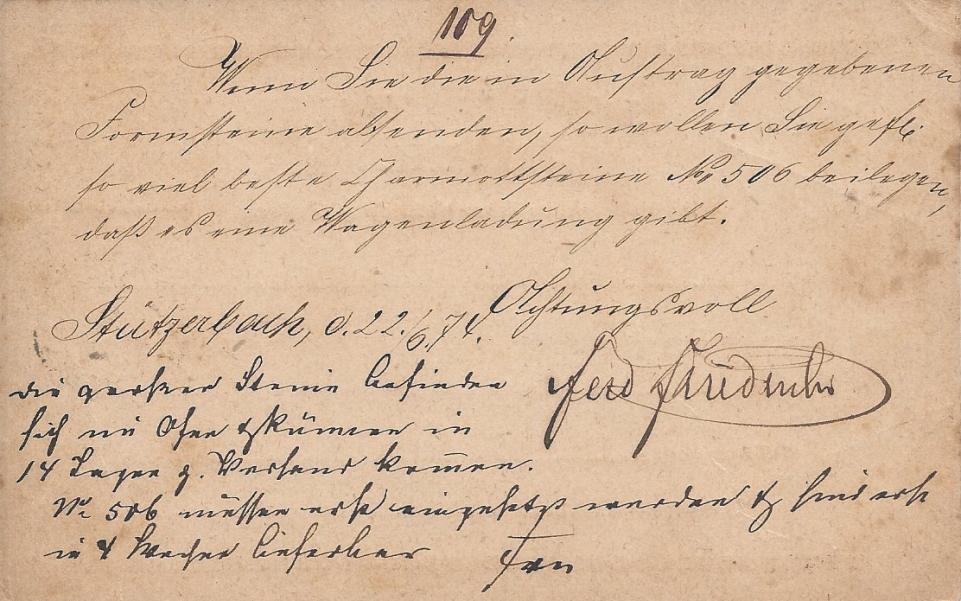 109.
Wenn Sie die in Auftrag gegebenen
Formsteine absenden, so wollen Sie gefl.
so viel beste Charmottsteine No 506 beilegen,
daß es eine Wagenladung gibt.
Achtungsvoll
Stützerbach, d. 22./6. 74.
Ferd
die großen Steine befinden
sich im Ofen & können in
14 Tagen z. Versand kommen.
No 506 müssen erst eingesetzt werden & sind erst
in 4 Wochen lieferbar